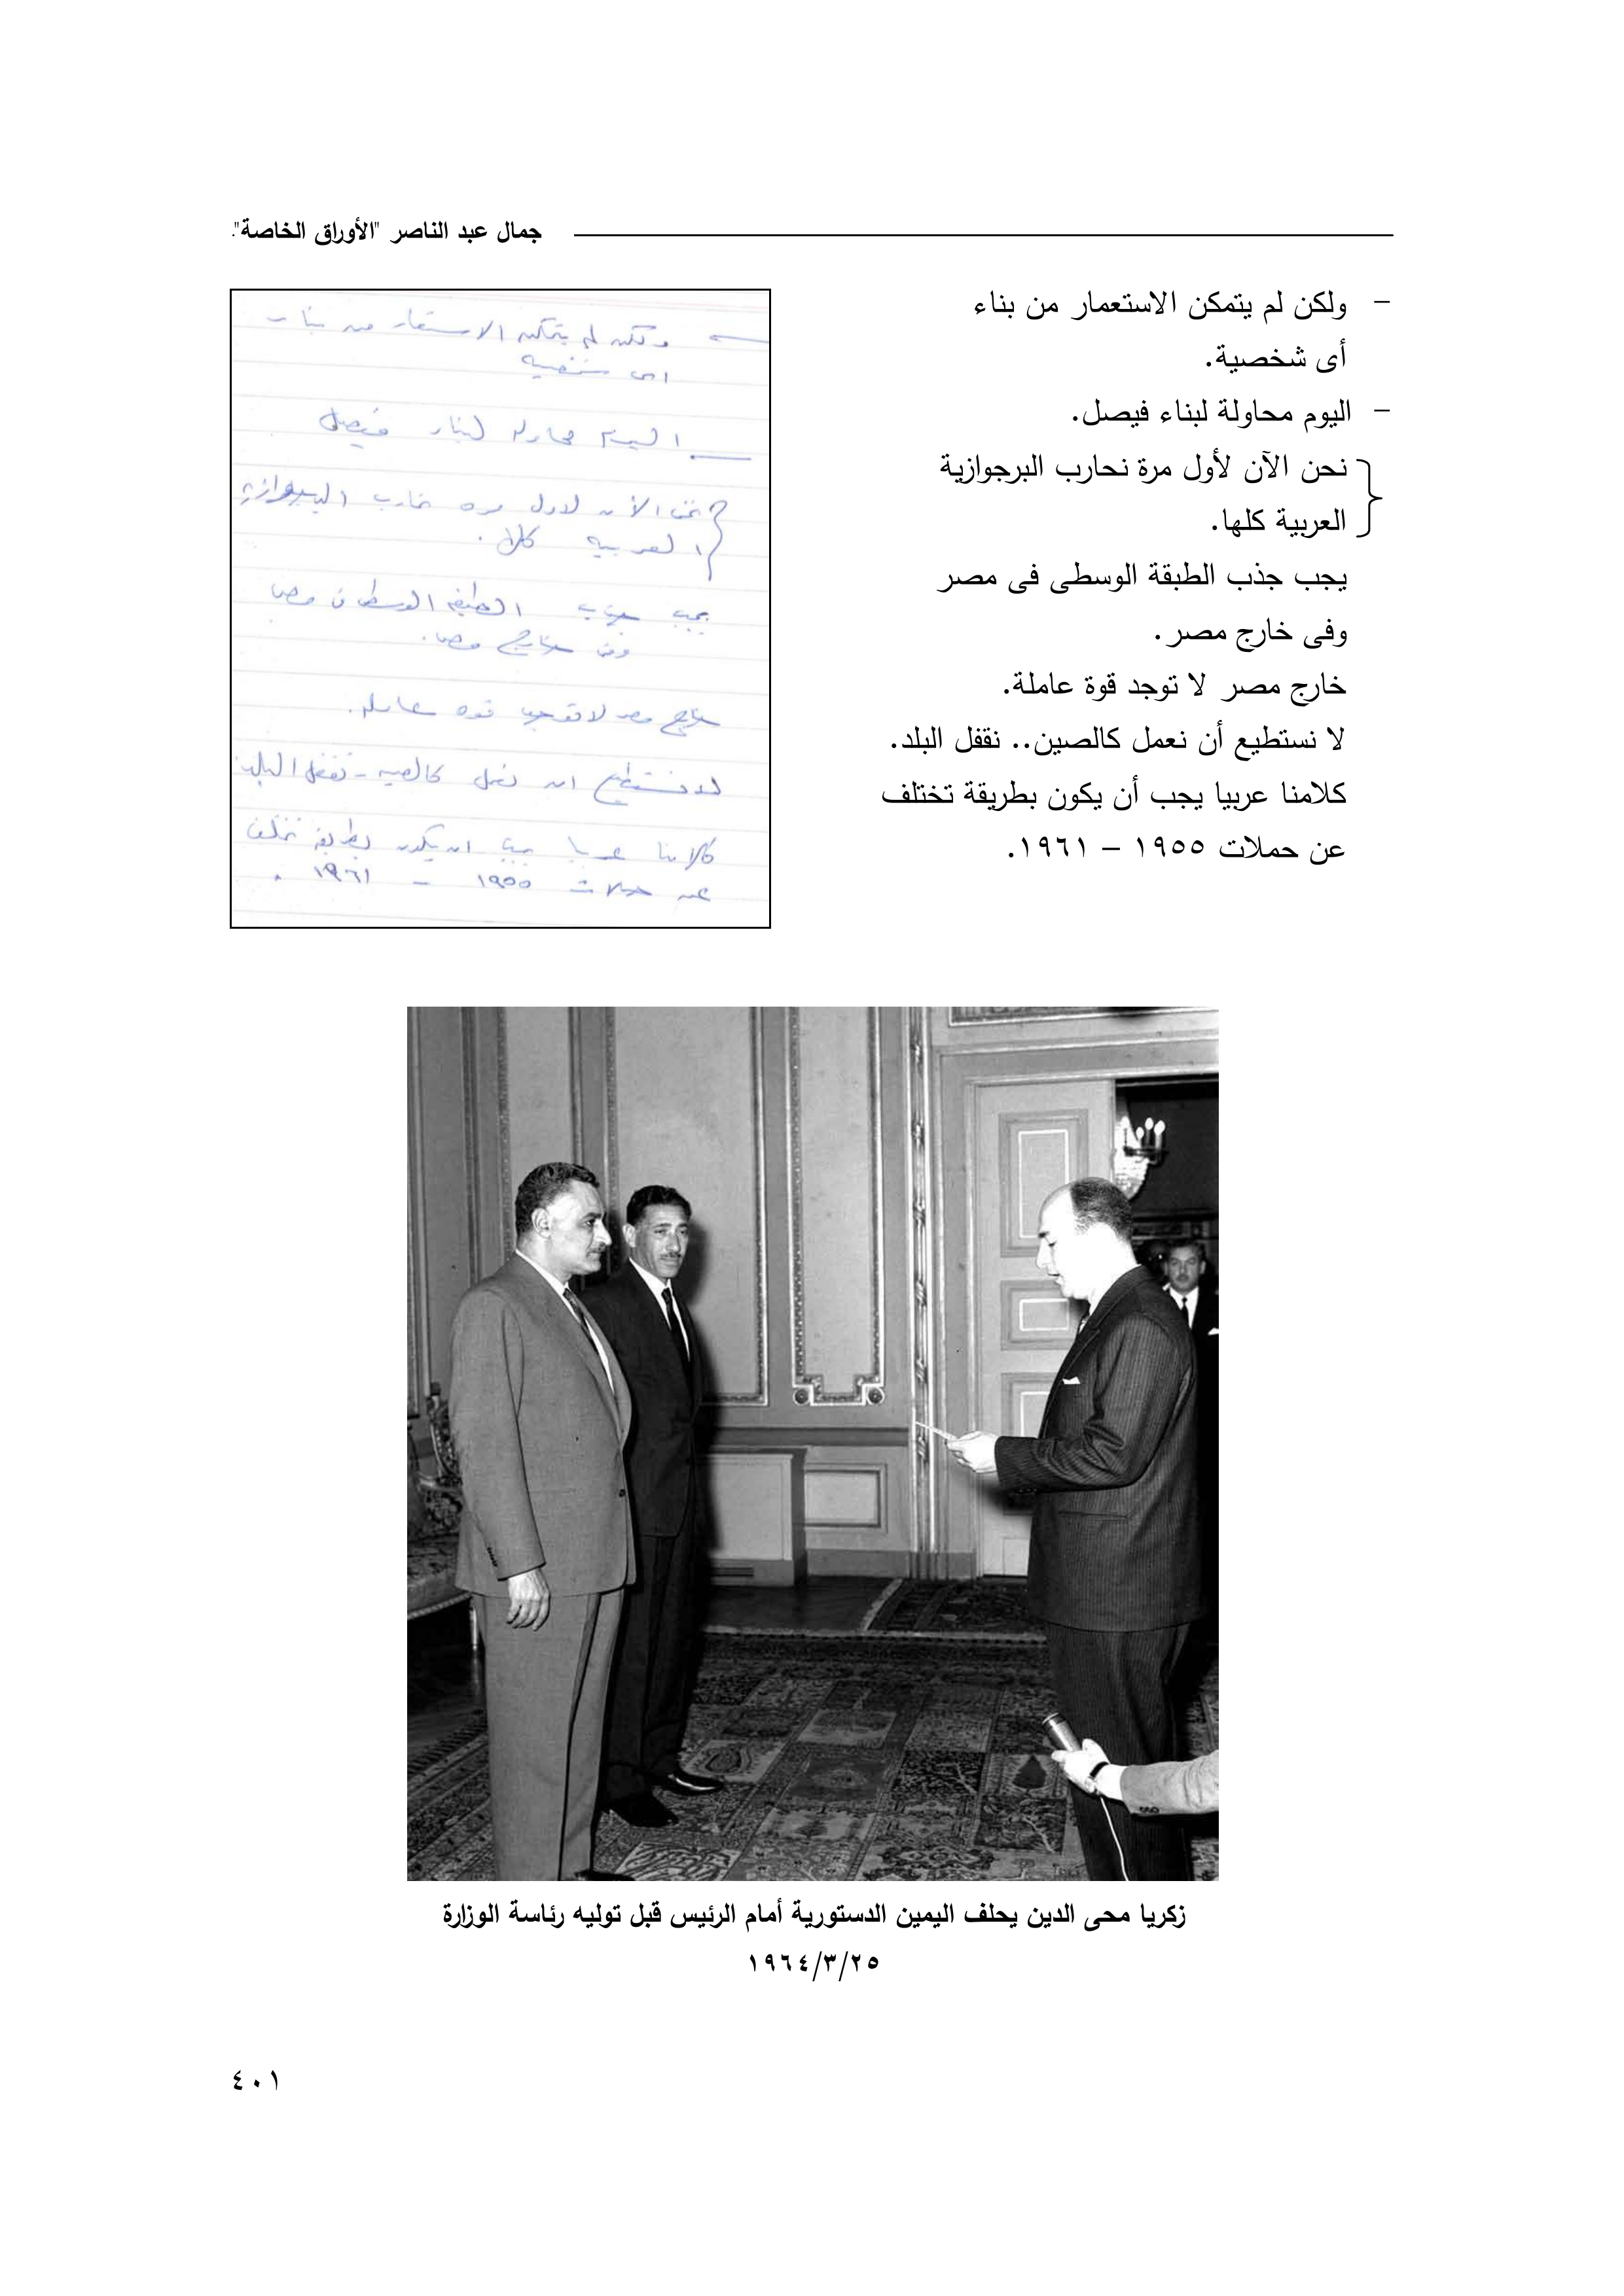 جمال عبد الناصر "الأوراق الخاصة".
– ولكن لم يتمكن الاستعمار من بناء
أى شخصية.
– اليوم محاولة لبناء فيصل.
نحن الآن لأول مرة نحارب البرجوازية
العربية كلها.
يجب جذب الطبقة الوسطى فى مصر
وفى خارج مصر.
خارج مصر لا توجد قوة عاملة.
لا نستطيع أن نعمل كالصين.. نقفل البلد.
كلامنا عربيا يجب أن يكون بطريقة تختلف
عن حملات ١٩٥٥ – ١٩٦١.
– ولكن لم يتمكن الاستعمار من بناء
اى شخصيه
– اليوم محاوله لبناء فيصل
نحن الأن لاول مره نحارب البرجوازيه
العربيه كلها.
يجب جذب الطبقه الوسطى فى مصر
وفى خارج مصر.
خارج مصر لا توجد قوه عامله.
لا نستطيع ان نعمل كالصين – نقفل البلد
كلامنا عربيا يجب ان يكون بطريقه تختلف
عن حملات ١٩٥٥ – ١٩٦١.
زكريا محى الدين يحلف اليمين الدستورية أمام الرئيس قبل توليه رئاسة الوزارة
١٩٦٤/٣/٢٥
٤٠١